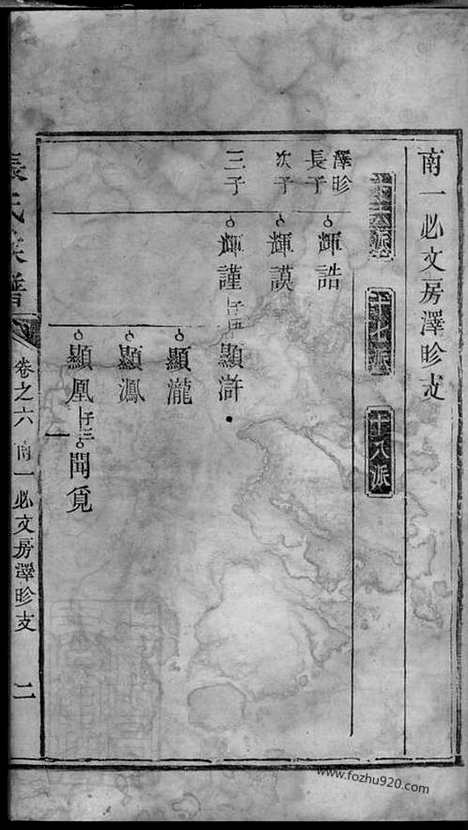 南一必文房澤昣支
十六派 十七派 十八派
澤昣
長子 輝誥
次子 輝謨
三子 輝謹 子四 顯滸
顯瀧
顯鳳
顯凰 子三 聞覓
張氏族譜 卷之六 南一必文房澤昣支 二
www.fozhu920.com